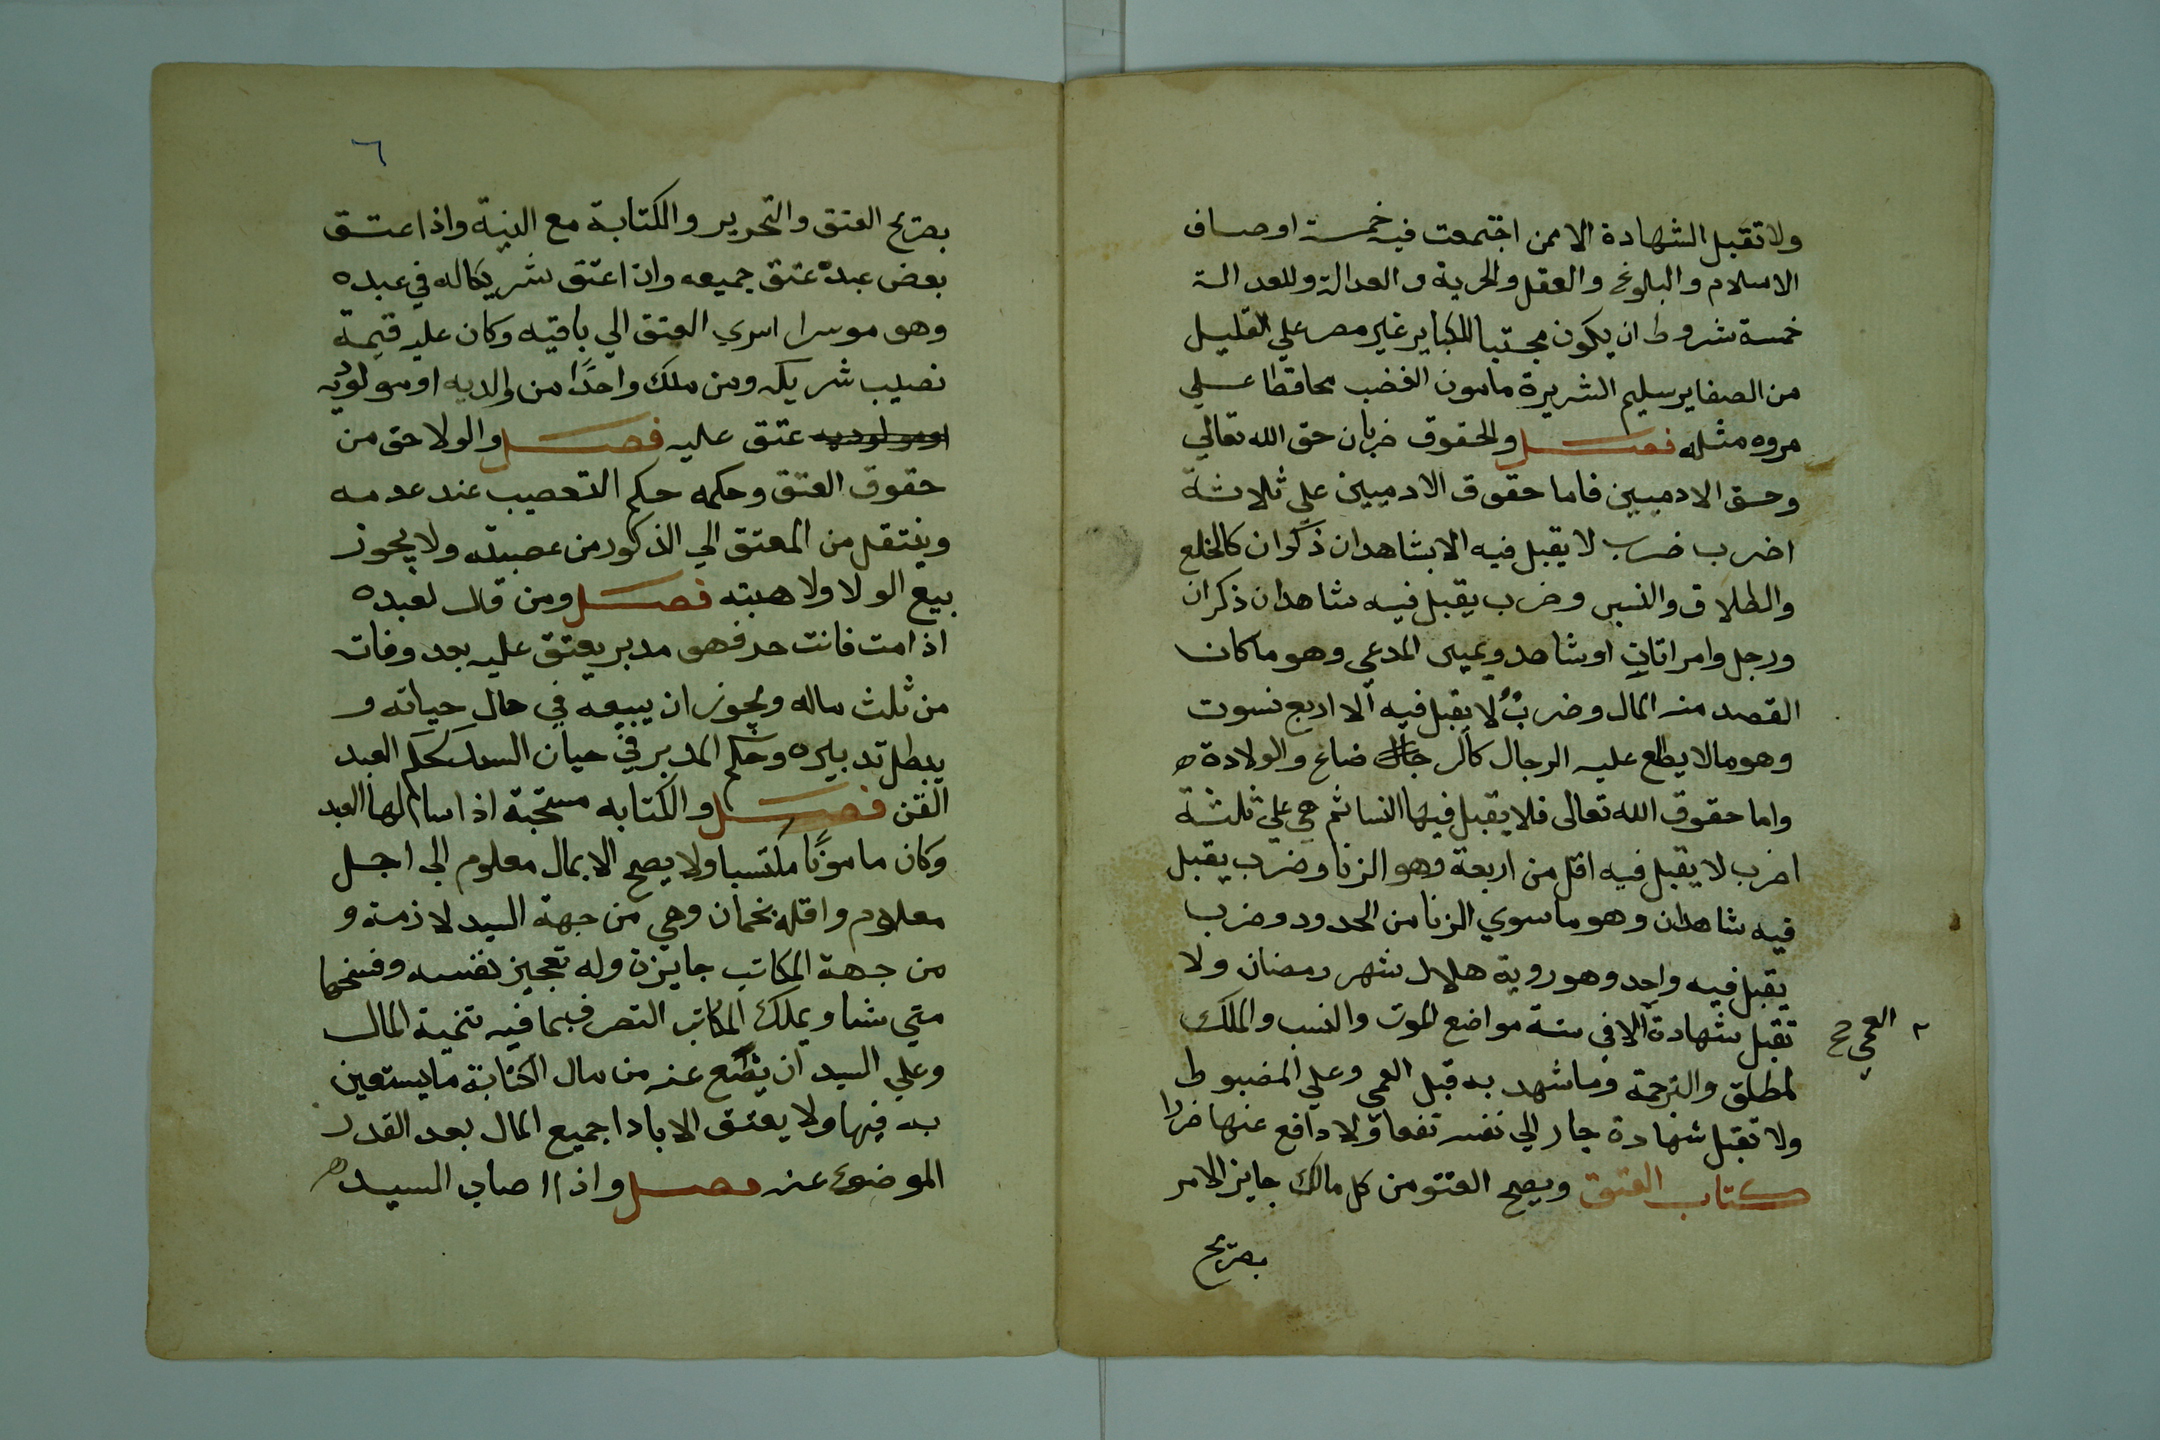 ولا تقبل الشهادة الا ممن اجتمعت فيه خمسة اوصاف
الاسلام والبلوغ والعقل والحرية والعدالة وللعدالة
خمسة شروط ان يكون مجتنبا للكباير غير مصر علي القليل
من الصغاير سليم الشريرة مامون الغضب محافظا علي
مروه مثله فصل والحقوق ضربان حق الله تعالي
وحق الادميين فاما حقوق الادميين علي ثلاثة
اضرب ضرب لا يقبل فيه الا بشاهدان ذكران كالخلع
والطلاق والنسب وضرب يقبل فيه شاهدان ذكران
ورجل وامراتان او شاهد ويمين المدعي وهو ما كان
القصد منه المال وضربٌ لا يقبل فيه الا اربع نسوت
وهو مالا يطلع عليه الرجال كالر ضاع والولادة
واما حقوق الله تعالى فلا يقبل فيها النسا ثم هي علي ثلثة
اضرب لا يقبل فيه اقل من اربعة وهو الزنا وضرب يقبل
فيه شاهدان وهو ما سوي الزنا من الحدود وضرب
يقبل فيه واحد وهو روية هلال شهر رمضان ولا
تقبل شهادة الا في ستة مواضع الموت والنسب والملك
العمي صح
لمطلق والترجمة وما شهد به قبل العمي وعلي المضبوط
ولا تقبل شهادة جار الي نفسه نفعا ولا دافع عنها ضررا
كتاب العتق ويصح العتق من كل مالك جايز الامر
بصريح
٦
بصريح العتق والتحرير والكتابة مع النية واذا اعتق
بعض عبده عتق جميعه وان اعتق شريكا له في عبده
وهو موسرا اسري العتق الي باقيه وكان عليه قيمة
نصيب شريكه ومن ملك واحدًا من والديه او مولوديه
او مولوديه عتق عليه فصل والولا حق من
حقوق العتق وحكمه حكم التعصيب عند عدمه
وينتقل من المعتق الي الذكور من عصبته ولا يجوز
بيع الولا ولا هبته فصل ومن قال لعبده
اذا مت فانت حر فهو مدبر يعتق عليه بعد وفاته
من ثلث ماله ويجوز ان يبيعه في حال حياته و
يبطل تدبيره وحكم المدبر في حيان السيد كحكم العبد
القن فصل والكتابه مستحبة اذا سالها العبد
وكان مامونًا مكتسبا ولا يصح الا بمال معلوم الي اجل
معلوم واقله نجمان وهي من جهة السيد لازمة و
من جهة المكاتب جايزة وله تعجيز نفسه وفسخها
متي شا ويملك المكاتب التصرف بما فيه تنمية المال
وعلي السيد ان يضع عنه من مال الكتابة ما يستعين
به فيها ولا يعتق الا باداجميع المال بعد القدر
الموضوع عنه فصل واذا اصاب السيد